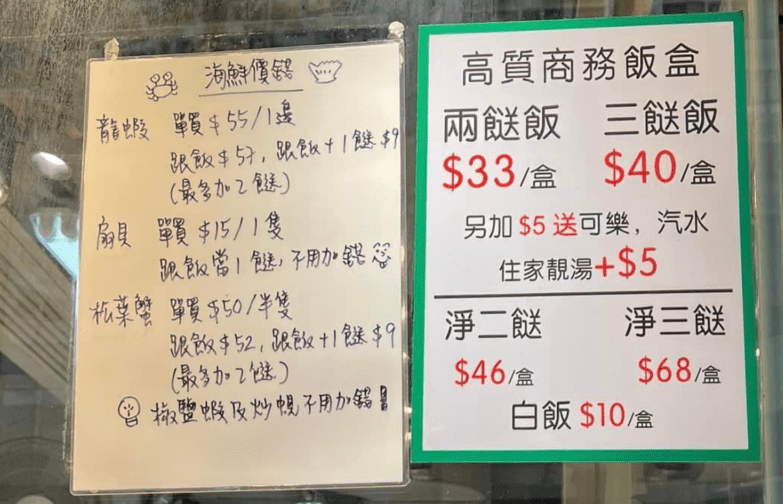 海鮮價錢
龍蝦 單買$55/1邊
跟飯$57, 跟飯+1餸$9
(最多加2餸)
扇貝 單買$15/1隻
跟飯當1餸, 不用加錢
松葉蟹 單買$50/半隻
跟飯$52, 跟飯+1餸$9
(最多加2餸)
椒鹽蝦及炒蜆不用加錢!
高質商務飯盒
兩餸飯 三餸飯
$33/盒 $40/盒
另加$5送可樂，汽水
住家靚湯+$5
淨二餸 淨三餸
$46/盒 $68/盒
白飯$10/盒